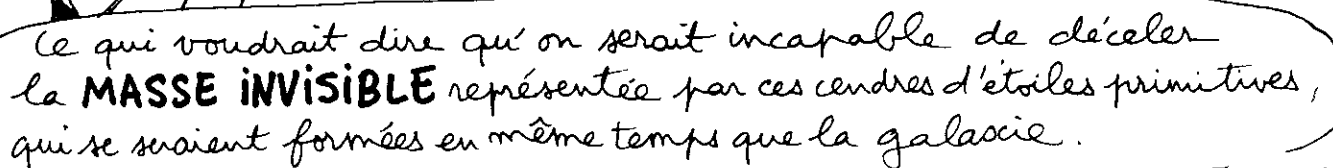 Ce qui voudrait dire qu'on serait incapable de déceler
la MASSE iNViSiBLE représentée par ces cendres d'étoiles primitives,
qui se seraient formées en même temps que la galaxie.